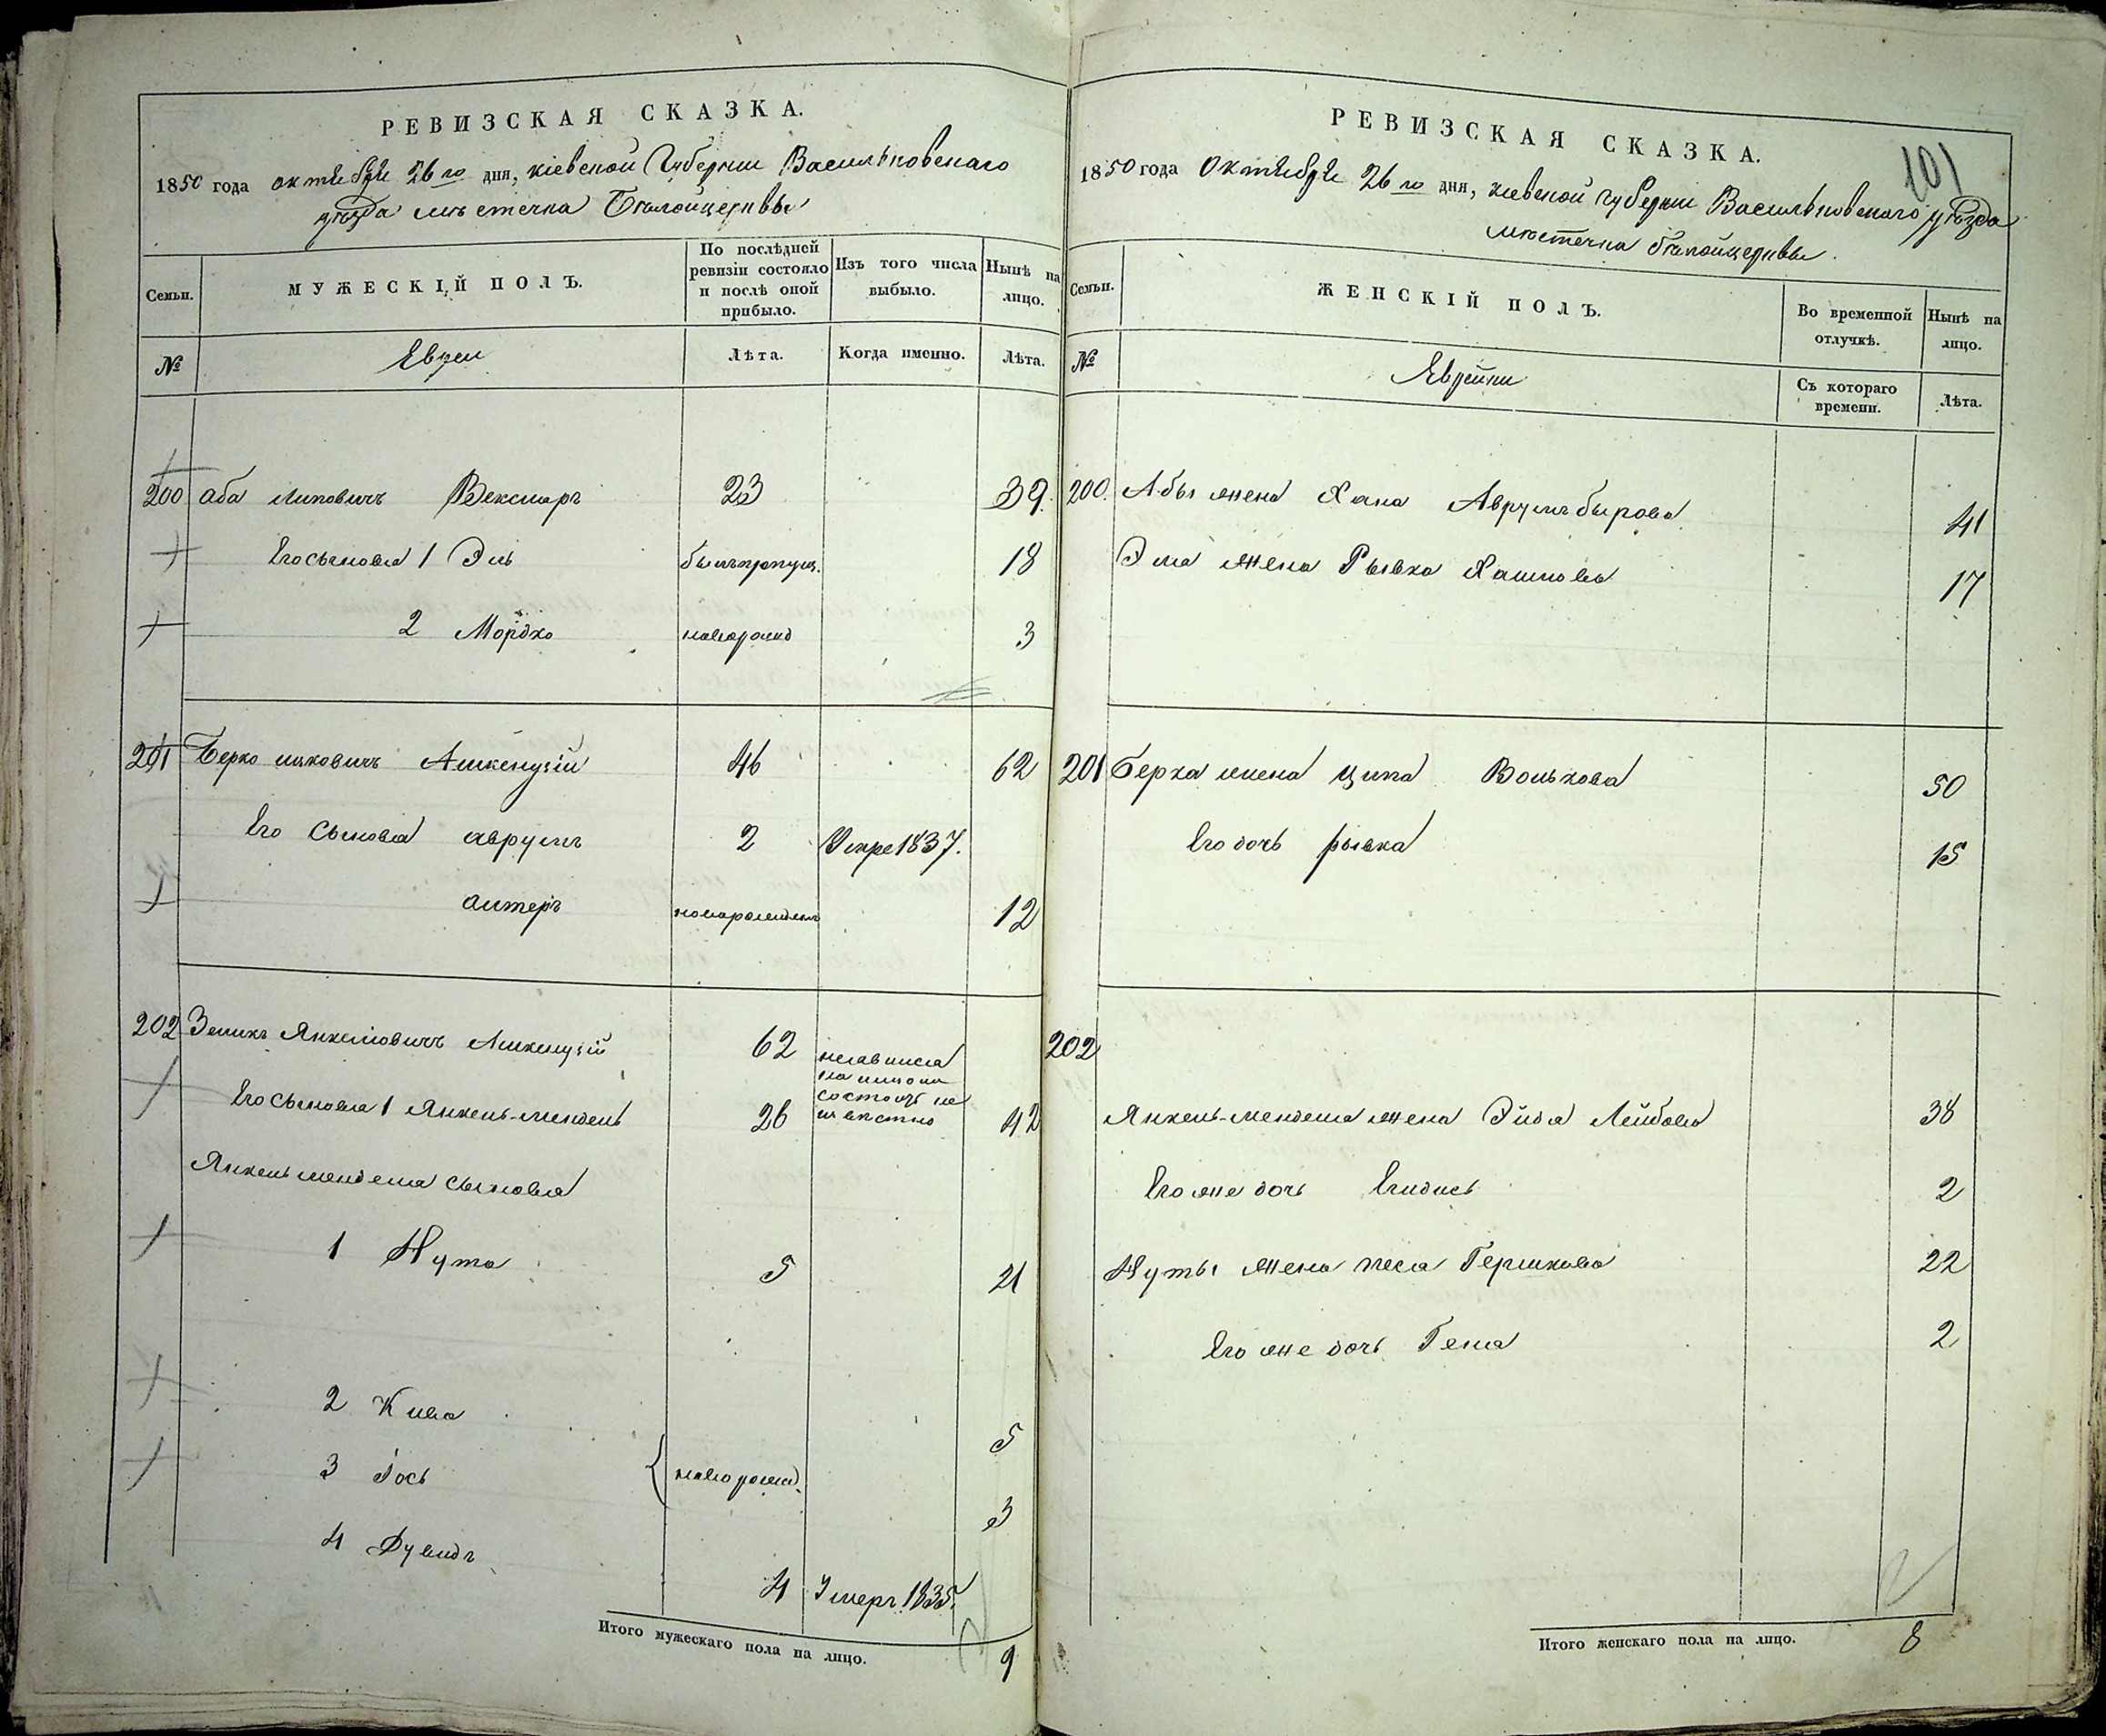 РЕВИЗСКАЯ СКАЗКА.
1850 года октября 26го дня, кіевской Губерніи Васильковскаго
уѣзда мѣстечка Бѣлойцеркви
Семьи.
МУЖЕСКІЙ ПОЛЪ.
По послѣдней
ревизіи состояло
и послѣ оной
прибыло.
Изъ того числа
выбыло.
Нынѣ на
лицо.
№
Евреи
Лѣта.
Когда именно.
Лѣта.
200 Аба Липовичъ 23 39.
Его сыновья 1 Эль 18
2 Мордко новорожд 3
201 Берко Ицковичъ Ашкенузій 46 62
Его сыновья Аврумъ 2 Умре 1837.
Алтеръ 12
202 Зеликъ Янкелювичъ Ашкенузій 62
Его сыновья 1 Янкель-мендель 26 42
Янкель мендела сыновья
1 Нута 5 21
2 Кива 5
3 Іось новорожд. 3
4 Дувидъ 4 Умеръ 1835.
Итого мужескаго пола на лицо. 9
РЕВИЗСКАЯ СКАЗКА.
101
1850 года Октября 26го дня, кіевской губерніи Васильковскаго уѣзда
мѣстечка бѣлойцеркви.
Семьи.
ЖЕНСКІЙ ПОЛЪ.
Во временной
отлучкѣ.
Нынѣ на
лицо.
№
Еврейки
Съ котораго
времени.
Лѣта.
200. Абы жена Хана 41
Эля жена Рывка 17
201 Берка жена Ципа Волькова 50
Его дочь рывка 15
202
Янкель-мендела жена Эйдя Лейбова 38
Его же дочь 2
Нуты жена песа Гершкова 22
Его же дочь Геня 2
Итого женскаго пола на лицо. 8